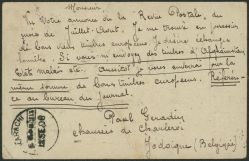 Monsieur
Vu votre annonce de la Revue Postale, du
mois de Juillet-Aout. Je me trouve en possession
de bons vieux timbres européens. Je désire échanger
Si vous m'envoyez des timbres d'Afghanistan
Etats malais etc. aussitôt je vous enverrai par la
même somme de bons timbres européens. Référen-
ce au bureau du journal.
Paul
chaussée de Charleroi
Jodoigne (Belgique)